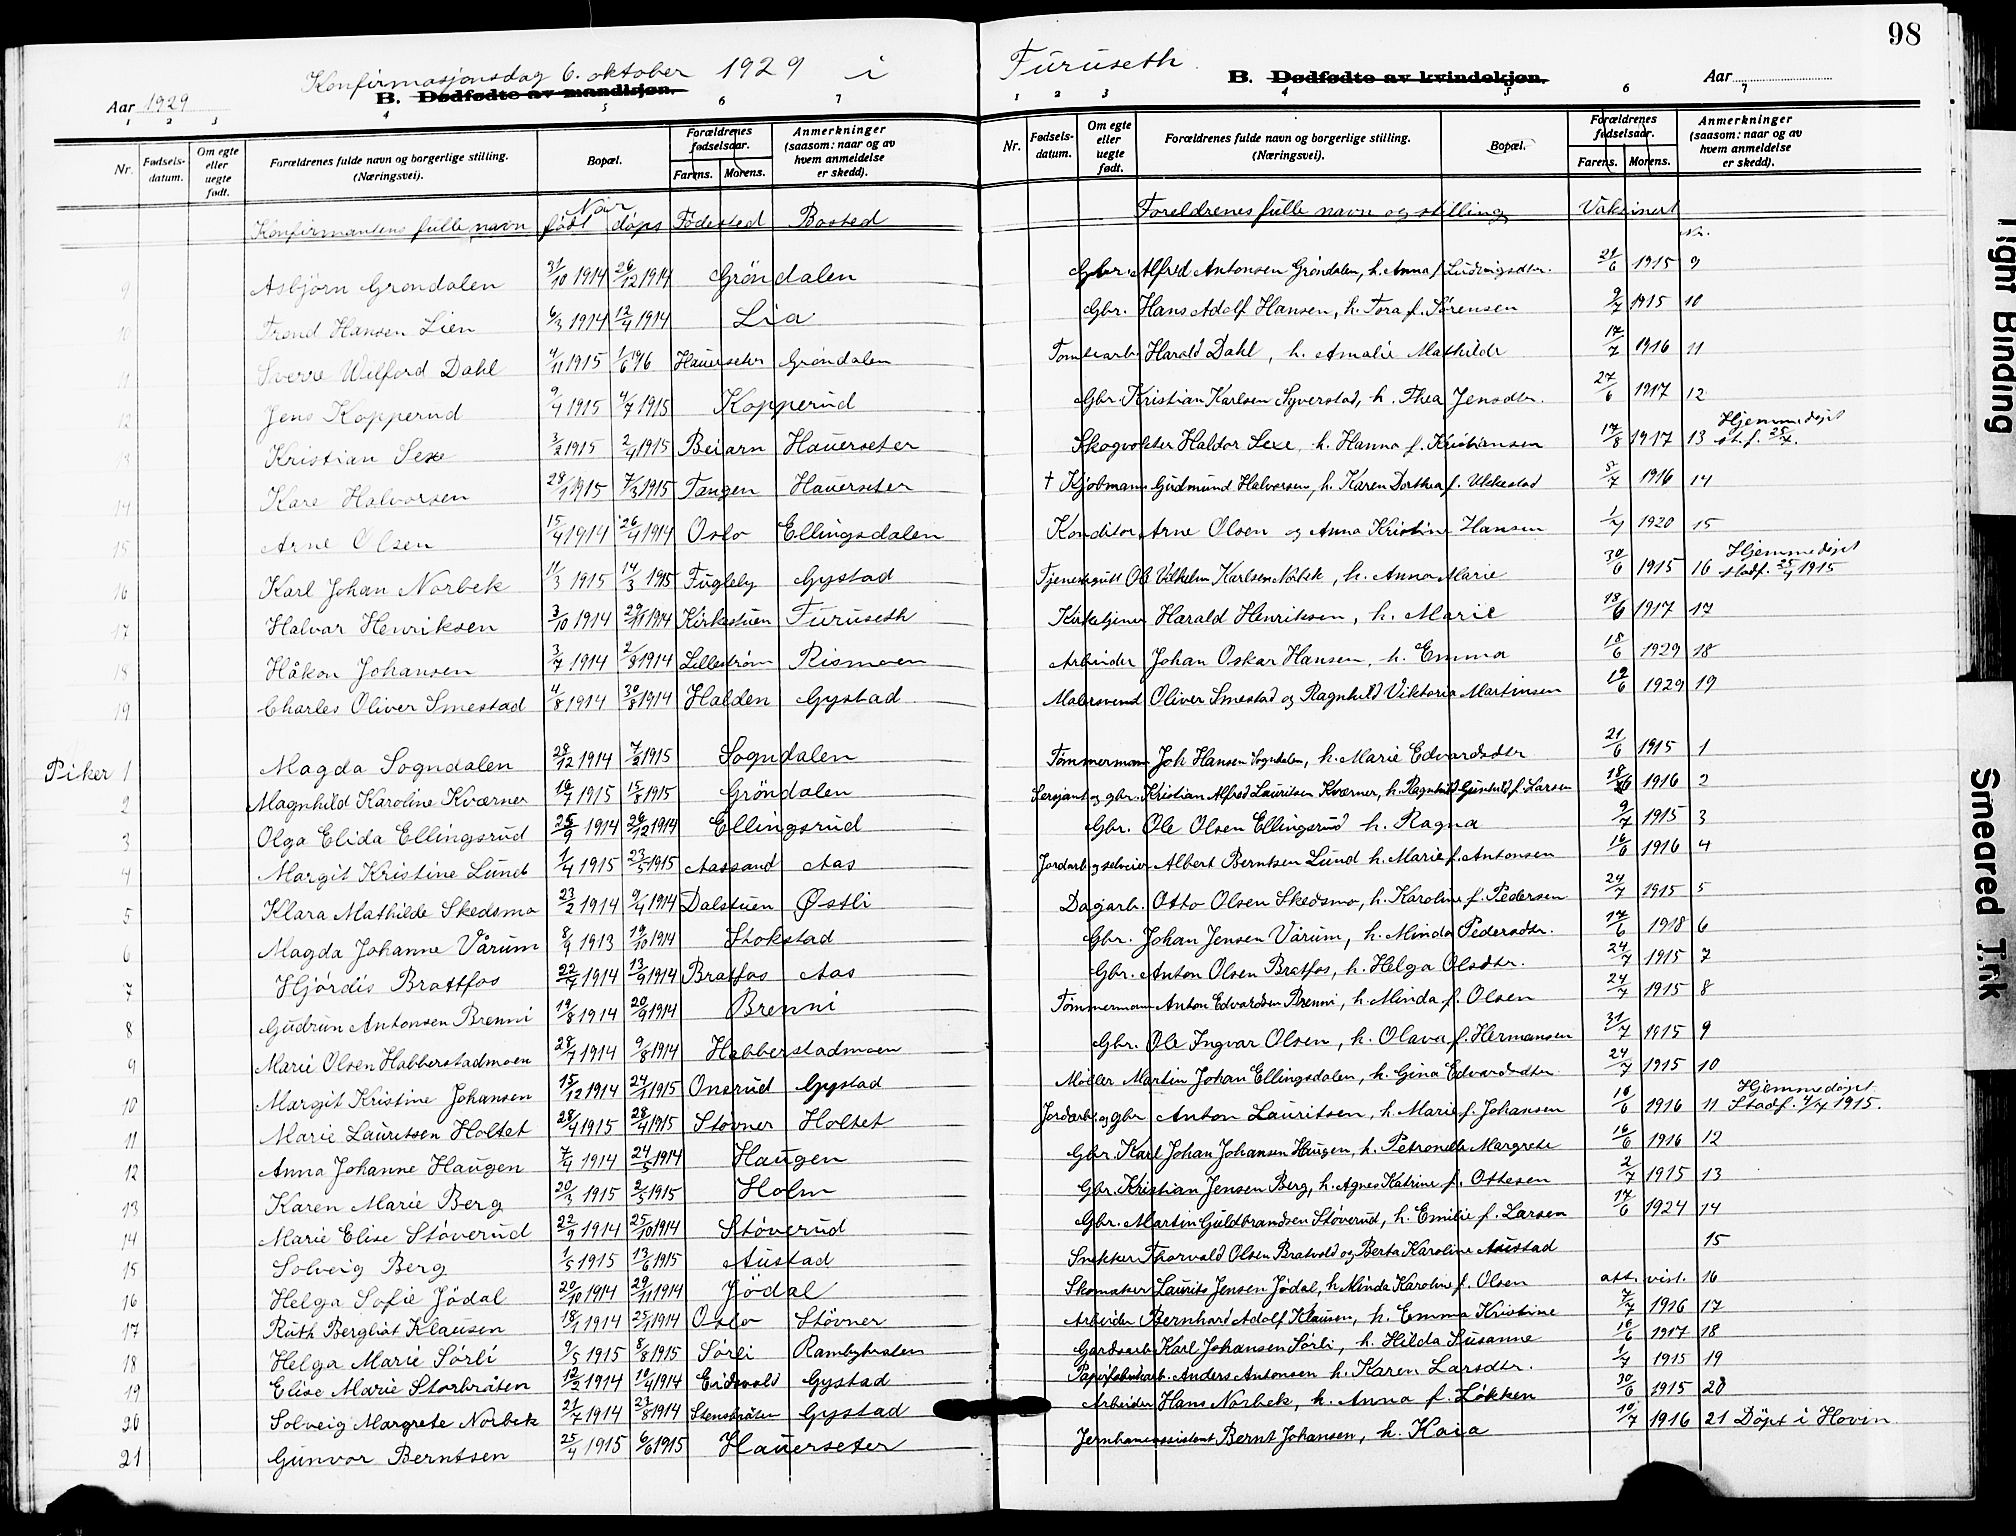 98
Konfirmasjonsdag 6. oktober 1929 i Furuseth
Aar 1929
B. Dødfødte av mandkjøn.
B. Dødfødte av kvindekjøn. Aar
1 2 3 4 5 6 7
1 2 3 4 5 6 7
Nr. Fødsels-datum. Om egte eller uegte født. Forældrenes fulde navn og borgerlige stilling. (Næringsvei). Bopæl. Forældrenes fødselsaar. Farens. Morens. Anmerkninger (saasom: naar og av hvem anmeldelse er skedd).
Nr. Fødsels-datum. Om egte eller uegte født. Forældrenes fulde navn og borgerlige stilling. (Næringsvei). Bopæl. Forældrenes fødselsaar. Farens. Morens. Anmerkninger (saasom: naar og av hvem anmeldelse er skedd).
Konfirmantens fulle navn Når født døpt Fødested Bosted Foreldrenes fulle navn og stilling Vaksinert Nr.
9 Asbjørn Grøndalen 31/10 1914 26/12 1914 Grøndalen Gbr. Alfred Antonsen Grøndalen, h. Anna f. Ludvigsdtr. 21/6 1915 9
10 Trond Hansen Lien 6/3 1914 12/4 1914 Lia Gbr. Hans Adolf Hansen, h. Tora f. Sørensen 9/7 1915 10
11 Sverre Wilford Dahl 4/11 1915 1/6 1916 Hauerseter Grøndalen Tomtearb. Harald Dahl, h. Amalie Mathilde 17/7 1916 11
12 Jens Kopperud 9/4 1915 4/7 1915 Kopperud Gbr. Kristian Karlsen Syverstad, h. Thea Jensdtr. 27/6 1917 12
13 Kristian Sexe 3/2 1915 2/4 1915 Beiarn Hauerseter Skogvokter Haldor Sexe, h. Hanna f. Kristiansen 17/8 1917 13 Hjemmedøpt st. f. 25/7.
14 Kåre Halvorsen 29/1 1915 7/3 1915 Tangen Hauerseter † Kjøbmann Gudmund Halvorsen, h. Karen Dorthea f. Ukkestad 5/7 1916 14
15 Arne Olsen 15/4 1914 26/4 1914 Oslo Ellingsdalen Konditor Arne Olsen og Anna Kristine Hansen 1/7 1920 15
16 Karl Johan Norbek 11/3 1915 14/3 1915 Fugleby Gystad Tjenestgutt Ole Vilhelm Karlsen Norbek, h. Anna Marie 30/6 1915 16 Hjemmedøpt stadf. 25/4 1915
17 Halvar Henriksen 3/10 1914 29/11 1914 Kirkestuen Furuseth Kirketjener Harald Henriksen, h. Marie 18/6 1917 17
18 Håkon Johansen 3/7 1914 2/8 1914 Lillestrøm Rismoen Arbeider Johan Oskar Hansen, h. Emma 18/6 1929 18
19 Charles Oliver Smestad 4/8 1914 30/8 1914 Halden Gystad Malersvend Oliver Smestad og Ragnhild Viktoria Martinsen 19/6 1929 19
Piker 1 Magda Sogndalen 28/12 1914 7/2 1915 Sogndalen Tømmermann Joh Hansen Sogndalen, h. Marie Edvardsdtr 21/6 1915 1
2 Magnhild Karoline Kværner 16/7 1915 15/8 1915 Grøndalen Sersjant og gbr. Kristian Alfred Lauritsen Kværner, h. Ragnhild Gunhild f. Larsen 18/6 1916 2
3 Olga Elida Ellingsrud 25/9 1914 26/12 1914 Ellingsrud Gbr. Ole Olsen Ellingsrud h. Ragna 9/7 1915 3
4 Margit Kristine Lund 1/4 1915 23/5 1915 Aassand Aas Jordarb. og selveier Albert Berntsen Lund h. Marie f. Antonsen 16/6 1916 4
5 Klara Mathilde Skedsmo 23/2 1914 9/4 1914 Dalstuen Østli Dagarb. Otto Olsen Skedsmo, h. Karoline f. Pedersen 24/7 1915 5
6 Magda Johanne Vårum 8/9 1913 19/10 1914 Stokstad Gbr. Johan Jensen Vårum, h. Minda Pedersdtr. 17/6 1918 6
7 Hjørdis Brattfos 22/7 1914 13/9 1914 Bratfos Aas Gbr. Anton Olsen Bratfos, h. Helga Olsdtr. 24/7 1915 7
8 Gudrun Antonsen Brenni 19/8 1914 20/9 1914 Brenni Tømmermann Anton Edvardsen Brenni, h. Minda f. Olsen 24/7 1915 8
9 Marie Olsen Habberstadmoen 28/7 1914 9/8 1914 Habberstadmoen Gbr. Ole Ingvar Olsen, h. Olava f. Hermansen 31/7 1915 9
10 Margit Kristine Johansen 15/12 1914 24/1 1915 Onsrud Gystad Møller Martin Johan Ellingsdalen, h. Gina Edvardsdtr 24/7 1915 10
11 Marie Lauritsen Holtet 28/4 1915 28/4 1915 Støvner Holtet Jordarb. og gbr Anton Lauritsen, h. Marie f. Johansen 16/6 1916 11 Hjemmedøpt. Stadf. 4/7 1915.
12 Anna Johanne Haugen 7/4 1914 24/5 1914 Haugen Gbr. Karl Johan Johansen Haugen, h. Petronella Margrete 16/6 1916 12
13 Karen Marie Berg 20/3 1915 2/5 1915 Holm Gbr. Kristian Jensen Berg, h. Agnes Katrine f. Ottesen 2/7 1915 13
14 Marie Elise Støverud 22/9 1914 25/10 1914 Støverud Gbr. Martin Guldbrandsen Støverud, h. Emilie f. Larsen 17/6 1924 14
15 Solveig Berg 1/5 1915 13/6 1915 Austad Snekker Thorvald Olsen Bratvold og Berta Karoline Austad 15
16 Helga Sofie Jødal 20/10 1914 29/11 1914 Jødal Skomaker Laurits Jensen Jødal, h. Minda Karoline f. Olsen att. vist. 16
17 Ruth Bergliot Klausen 18/1 1914 25/1 1914 Oslo Støvner Arbeider Bernhard Adolf Klausen, h. Emma Kristine 7/7 1926 17
18 Helga Marie Sørli 9/5 1915 8/8 1915 Sørli Rambybråten Gardsarb Karl Johansen Sørli, h. Hilda Susanne 16/6 1917 18
19 Elise Marie Storbråten 12/2 1914 10/4 1914 Eidsvold Gystad Papirfabrikarb. Anders Antonsen h. Karen Larsdtr. 1/7 1915 19
20 Solveig Margrete Norbek 21/7 1914 23/8 1914 Stensbråten Gystad Arbeider Hans Norbek, h. Anna f. Løkken 30/6 1915 20
21 Gunvor Berntsen 25/4 1915 6/6 1915 Hauerseter Jernbaneassistent Bernt Johansen, h. Kaia 10/7 1916 21 Døpt i Hovin
Tight Binding
Smeared Ink